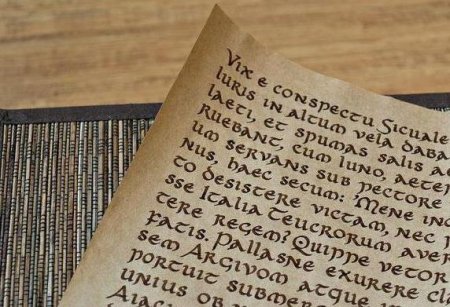 Vix e conspectu Sicuale
luris in altum vela daba
laeti, et spumas salis ae
ruebant, cum Iuno, aeter
um servans sub pectore
nus, haec secum: 'Mene inc
to desistere victam, nec p
sse Italia Teucrorum aver
tere regem? Quippe vetor
fatis. Pallasne exurere cla
sem Argivom atque
portuit submer
unius ob
Aiac